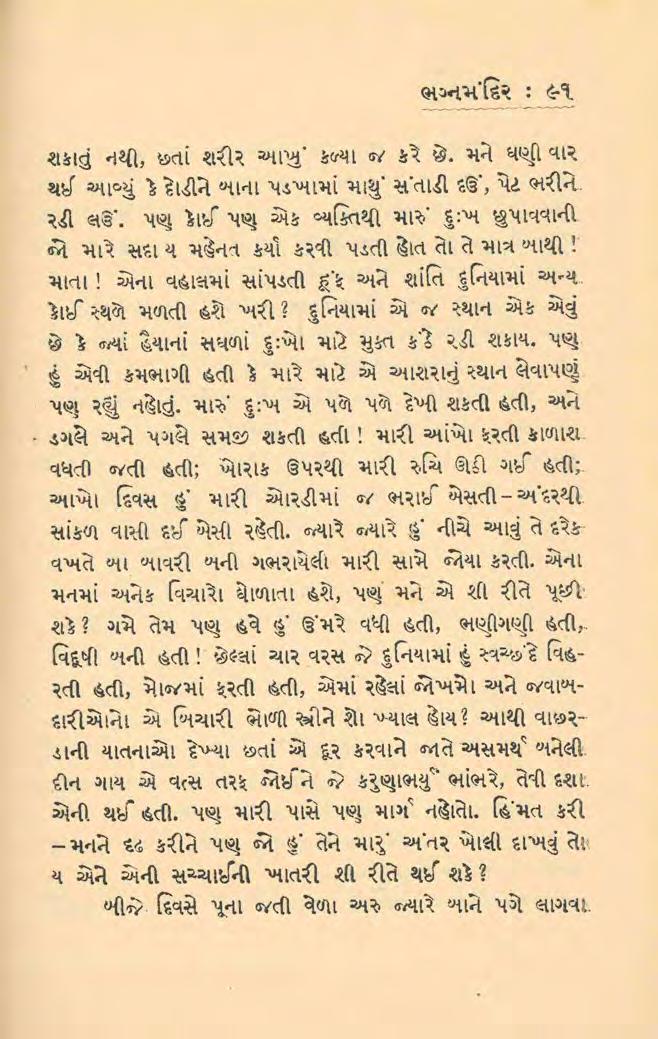 ભગ્નમંદિર : ૯૧
શકાતું નથી, છતાં શરીર આખું કળ્યા જ કરે છે. મને ઘણી વાર
થઈ આવ્યું કે દોડીને બાના પડખામાં માથું સંતાડી દઉં, પેટ ભરીને
રડી લઉં. પણ કોઈ પણ એક વ્યક્તિથી મારું દુઃખ છુપાવવાની
જો મારે સદા ય મહેનત કર્યા કરવી પડતી હોત તો તે માત્ર બાથી !
માતા ! એના વહાલમાં સાંપડતી હૂંફ અને શાંતિ દુનિયામાં અન્ય
કોઈ સ્થળે મળતી હશે ખરી ? દુનિયામાં એ જ સ્થાન એક એવું
છે કે જ્યાં હૈયાનાં સઘળાં દુઃખો માટે મુક્ત કંઠે રડી શકાય. પણ
હું એવી કમભાગી હતી કે મારે માટે એ આશરાનું સ્થાન લેવાપણું
પણ રહ્યું નહોતું. મારું દુઃખ એ પળે પળે દેખી શકતી હતી, અને
ડગલે અને પગલે સમજી શકતી હતી ! મારી આંખો ફરતી કાળાશ
વધતી જતી હતી; ખોરાક ઉપરથી મારી રુચિ ઊડી ગઈ હતી;
આખો દિવસ હું મારી ઓરડીમાં જ ભરાઈ બેસતી – અંદરથી
સાંકળ વાસી દઈ બેસી રહેતી. જ્યારે જ્યારે હું નીચે આવું તે દરેક
વખતે બા બાવરી બની ગભરાયેલી મારી સામે જોયા કરતી. એના
મનમાં અનેક વિચારો ઘોળાતા હશે, પણ મને એ શી રીતે પૂછી
શકે ? ગમે તેમ પણ હવે હું ઉંમરે વધી હતી, ભણીગણી હતી,
વિદૂષી બની હતી ! છેલ્લાં ચાર વરસ જે દુનિયામાં હું સ્વચ્છંદે વિહ-
રતી હતી, મોજમાં ફરતી હતી, એમાં રહેલાં જોખમો અને જવાબ-
દારીઓનો એ બિચારી ભોળી સ્ત્રીને શો ખ્યાલ હોય ? આથી વાછર-
ડાની યાતનાઓ દેખ્યા છતાં એ દૂર કરવાને જાતે અસમર્થ બનેલી
દીન ગાય એ વત્સ તરફ જોઈને જે કરુણાભર્યું ભાંભરે, તેવી દશા
એની થઈ હતી. પણ મારી પાસે પણ માર્ગ નહોતો. હિંમત કરી
– મનને દૃઢ કરીને પણ જો હું તેને મારું અંતર ખોલી દાખવું તો
ય એને એની સચ્ચાઈની ખાતરી શી રીતે થઈ શકે ?
બીજે દિવસે પૂના જતી વેળા અરુ જ્યારે બાને પગે લાગવા